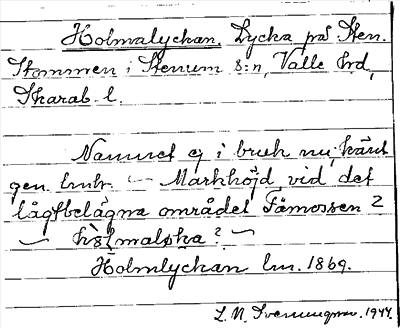 Holmalyckan. Lycka på Sten.
Stommen i Stenum s:n, Valle hrd,
Skarab. l.
Namnet ej i bruk nu, känt
gen. lmtr. — Markhöjd vid det
lågtbelägna området Fämossen 2
— hòlmalỳka? —
Holmlyckan lm. 1869.
L. N. Svenungsson. 1944.